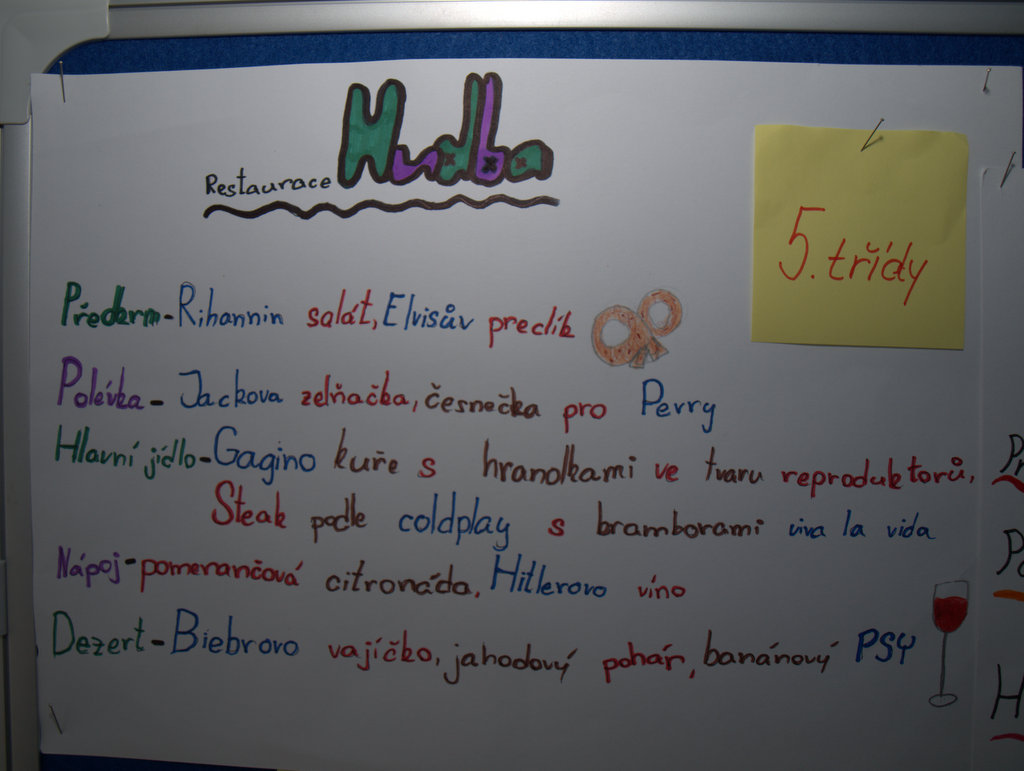 Restaurace Hudba
5. třídy
Předkrm - Rihannin salát, Elvisův preclík
Polévka - Jackova zelňačka, česnečka pro Perry
Hlavní jídlo - Gagino kuře s hranolkami ve tvaru reproduktorů,
Steak podle coldplay s bramborami viva la vida
Nápoj - pomerančová citronáda, Hitlerovo víno
Dezert - Biebrovo vajíčko, jahodový pohár, banánový PSY